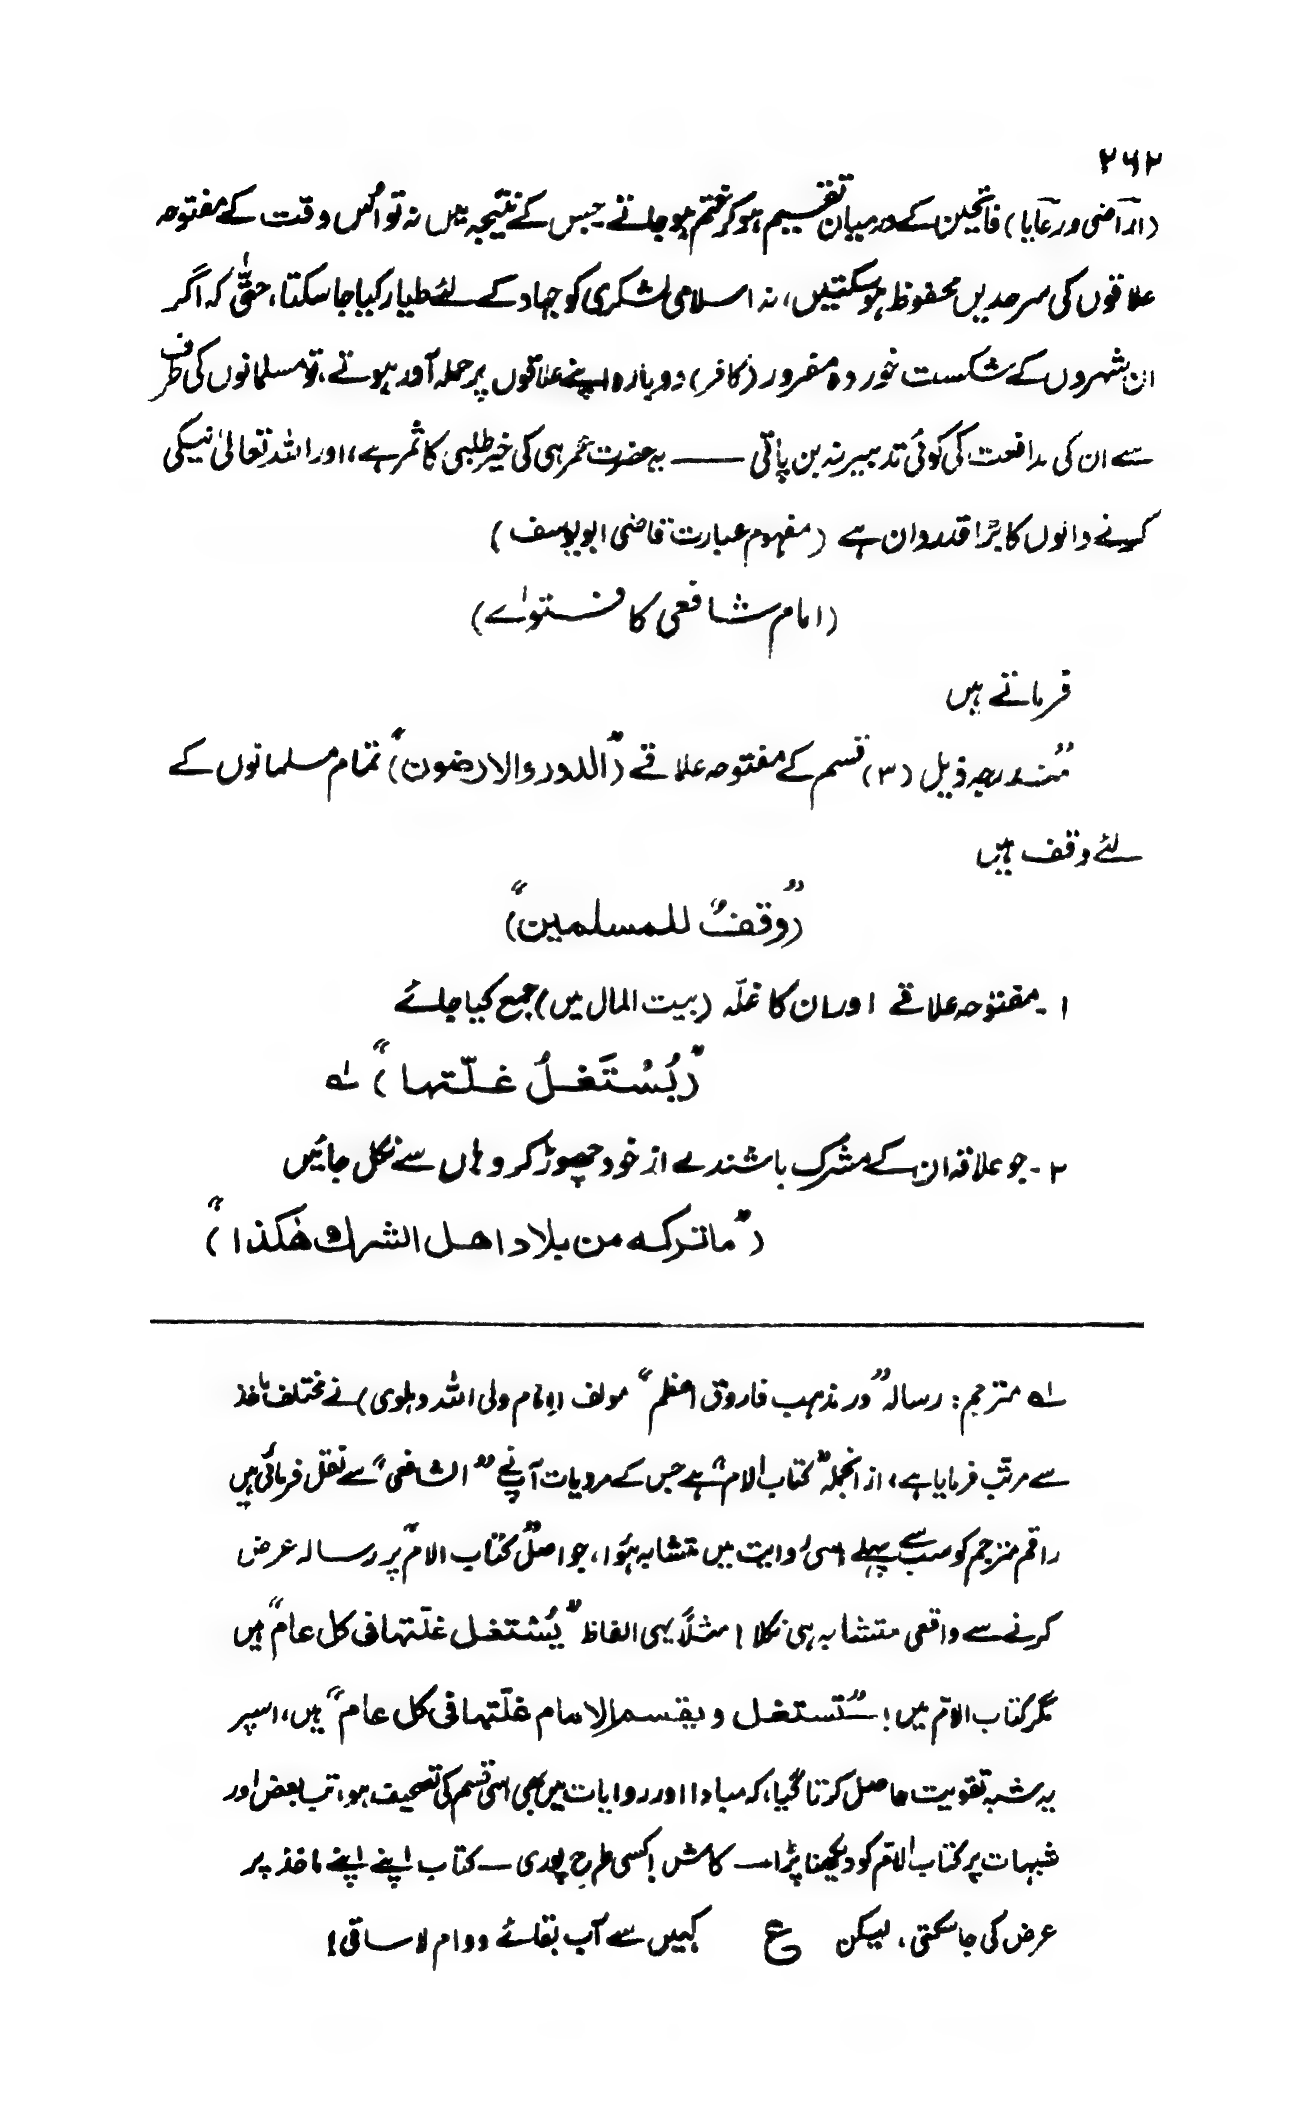 ۲۶۲
(اراضی و رعایا) فاتحین کے درمیان تقسیم ہو کر ختم ہو جاتے جس کے نتیجہ میں نہ تو اُس وقت کے مفتوحہ
علاقوں کی سرحدیں محفوظ ہو سکتیں، نہ اسلامی لشکری کو جہاد کے لئے طیار کیا جا سکتا، حتّٰی کہ اگر
ان شہروں کے شکست خوردہ مفرور (کافر) دوبارہ اپنے علاقوں پر حملہ آور ہوتے، تو مسلمانوں کی طرف
سے ان کی مدافعت کی کوئی تدبیر نہ بن پاتی —— یہ حضرت عمر ہی کی خیر طلبی کا ثمر ہے، اور اللہ تعالیٰ نیکی
کرنے والوں کا بڑا قدردان ہے (مفہوم عبارت قاضی ابو یوسف)
(امام شافعی کا فتوےٰ)
فرماتے ہیں
"مندرجہ ذیل (۳) قسم کے مفتوحہ علاقے ("الدور والارضون") تمام مسلمانوں کے
لئے وقف ہیں
("وقفٌ للمسلمین")
۱۔ مفتوحہ علاقے اور ان کا غلّہ (بیت المال میں) جمع کیا جائے
("یُسْتَغلُ غلّتہا") لہ
۲۔ جو علاقہ ان کے مشرک باشندے از خود چھوڑ کر وہاں سے نکل جائیں
("ما ترکہ من بلاد اھل الشرك ھٰکذا")
لہ مترجم: رسالہ "در مذہب فاروق اعظم" مولف (امام ولی اللہ دہلوی) نے مختلف ماخذ
سے مرتب فرمایا ہے، از انجملہ "کتاب الام" ہے جس کے مرویات آپنے "الشافعی" سے نقل فرمائی ہیں
راقم مترجم کو سب سے پہلے اسی روایت میں متشابہ ہُوا، جو اصل "کتاب الام" پر رسالہ عرض
کرنے سے واقعی متشابہ ہی نکلا! مثلاً یہی الفاظ "یُسْتغل غلّتہا فی کل عام" ہیں
مگر کتاب الامّ میں! "تستغل و یقسم الامام غلّتہا فی کل عام" ہیں، اسپر
یہ شبہ تقویت حاصل کرتا گیا، کہ مبادا اور روایات میں بھی اسی قسم کی تصحیف ہو، تب بعض اور
شبہات پر کتاب الامّ کو دیکھنا پڑا — کاش! کسی طرح پوری — کتاب اپنے اپنے ماخذ پر
عرض کی جا سکتی، لیکن ع کہیں سے آب بقائے دوام لا ساقی!